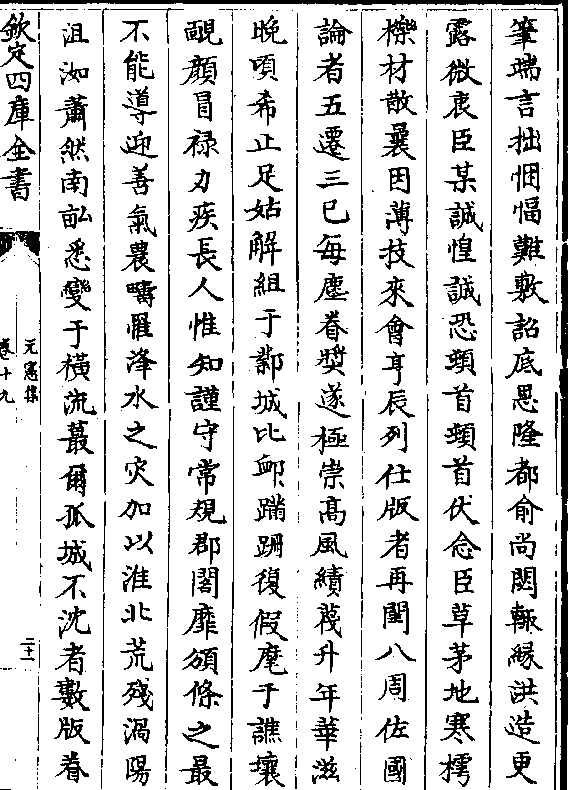 筆端言拙悃愊難敷詔底恩隆都俞尚閟輙緣洪造更
露微衷臣某誠惶誠恐頓首頓首伏念臣草茅地寒樗
櫟材散曩因薄技來會亨辰列仕版者再閏八周佐國
論者五遷三已每塵眷奬遂極崇髙風績蔑升年華滋
晚頃希止足姑解組于鄯城比䘏蹣跚復假麾于譙壤
靦顔冒禄力疾長人惟知謹守常規郡閤靡頒條之最
不能導迎善氣農疇罹洚水之灾加以淮北荒殘渦陽
沮洳蕭然南畝悉變于横流蕞爾孤城不沈者數版眷
欽定四庫全書
元憲集
卷十九
二十一